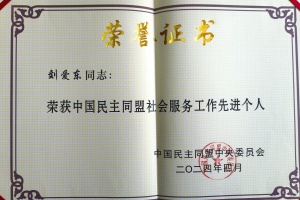 荣誉证书
刘爱东同志：
荣获中国民主同盟社会服务工作先进个人
中国民主同盟中央委员会
二〇二四年四月